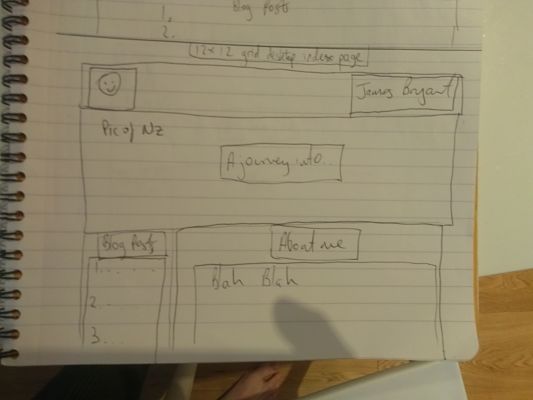 1.
Blog Posts
2.
12x12 grid desktop index page
James Bryant
Pic of NZ
A journey into..
Blog Posts
About me
1. . . . .
Blah Blah
2. .
3. . .